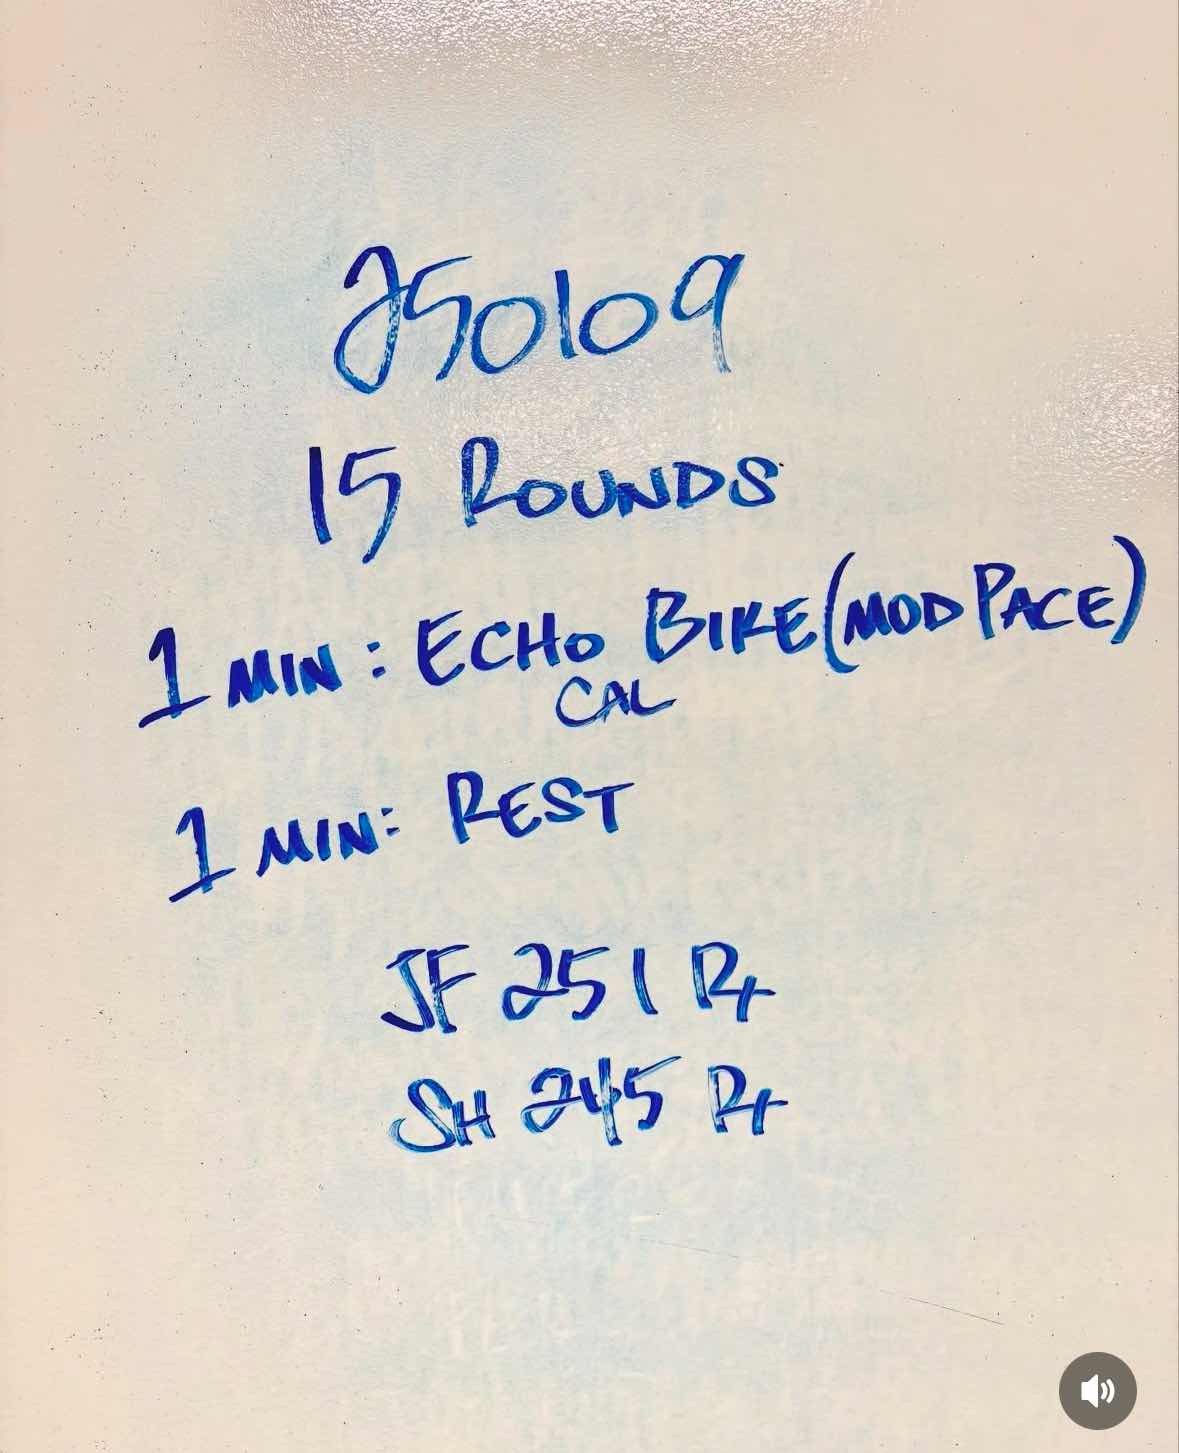 250109
15 ROUNDS
1 MIN: ECHO BIKE (MOD PACE)
CAL
1 MIN: REST
JF 251 Rx
SH 245 Rx